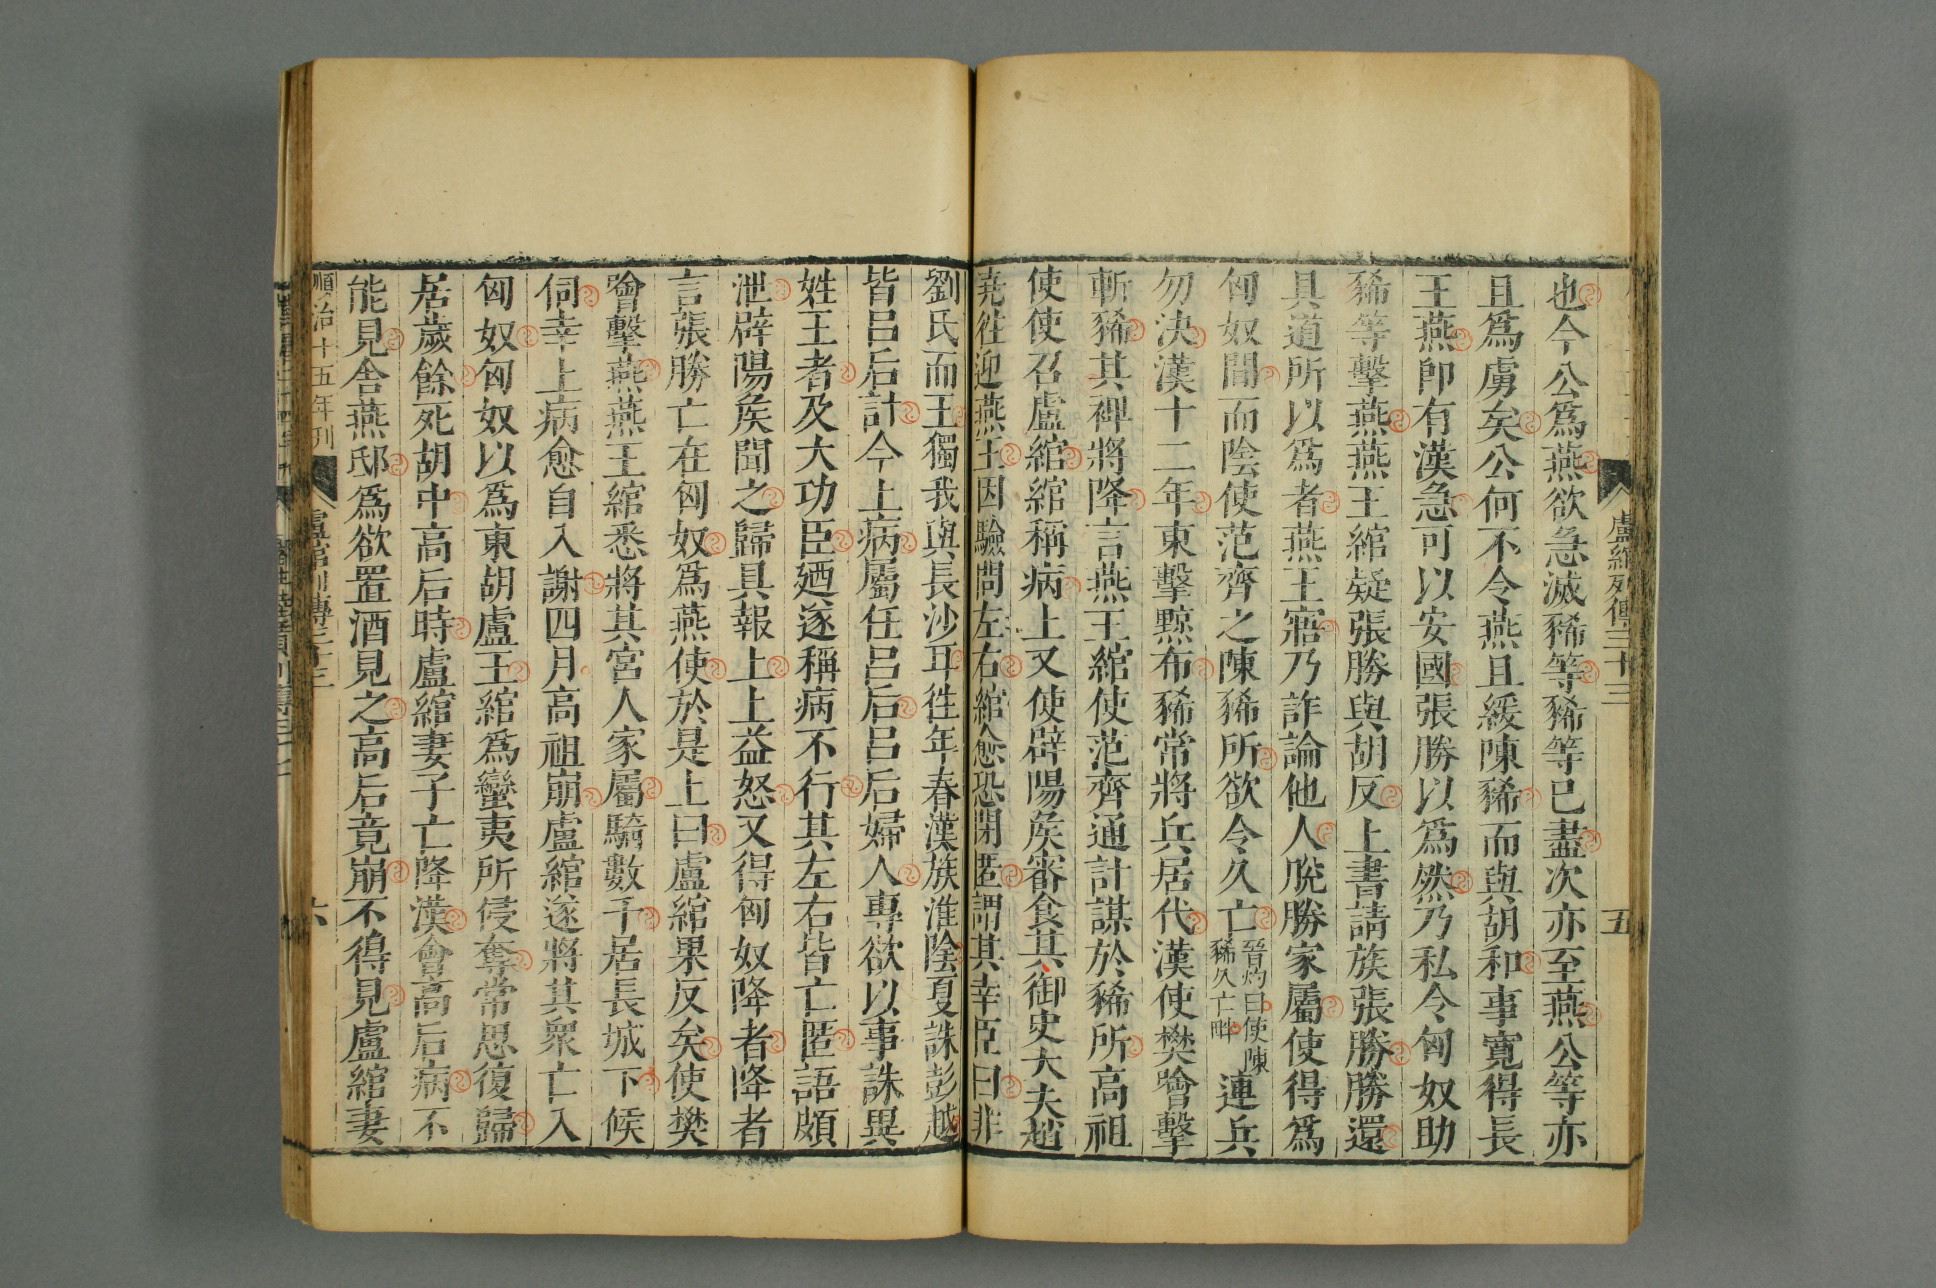 盧綰列傳三十三
五
也今公爲燕欲急滅豨等豨等已盡次亦至燕公等亦
且爲虜矣公何不令燕且緩陳豨而與胡和事寬得長
王燕卽有漢急可以安國張勝以爲然乃私令匈奴助
豨等擊燕燕王綰疑張勝與胡反上書請族張勝勝還
具道所以爲者燕王寤乃詐論他人脫勝家屬使得爲
匈奴間而陰使范齊之陳豨所欲令久亡
晉灼曰使陳
豨久亡畔
連兵
勿決漢十二年東擊黥布豨常將兵居代漢使樊噲擊
斬豨其裨將降言燕王綰使范齊通計謀於豨所高祖
使使召盧綰綰稱病上又使辟陽矦審食其御史大夫趙
堯徃迎燕王因驗問左右綰愈恐閉匿謂其幸臣曰非
劉氏而王獨我與長沙耳徃年春漢族淮陰夏誅彭越
皆呂后計今上病屬任呂后呂后婦人專欲以事誅異
姓王者及大功臣廼遂稱病不行其左右皆亡匿語頗
泄辟陽矦聞之歸具報上上益怒又得匈奴降者降者
言張勝亡在匈奴爲燕使於是上曰盧綰果反矣使樊
噲擊燕燕王綰悉將其宮人家屬騎數千居長城下候
伺幸上病愈自入謝四月高祖崩盧綰遂將其衆亡入
匈奴匈奴以爲東胡盧王綰爲蠻夷所侵奪常思復歸
居歲餘死胡中高后時盧綰妻子亡降漢會高后病不
能見舍燕邸爲欲置酒見之高后竟崩不得見盧綰妻
順治十五年刊
盧綰列傳三十三
六